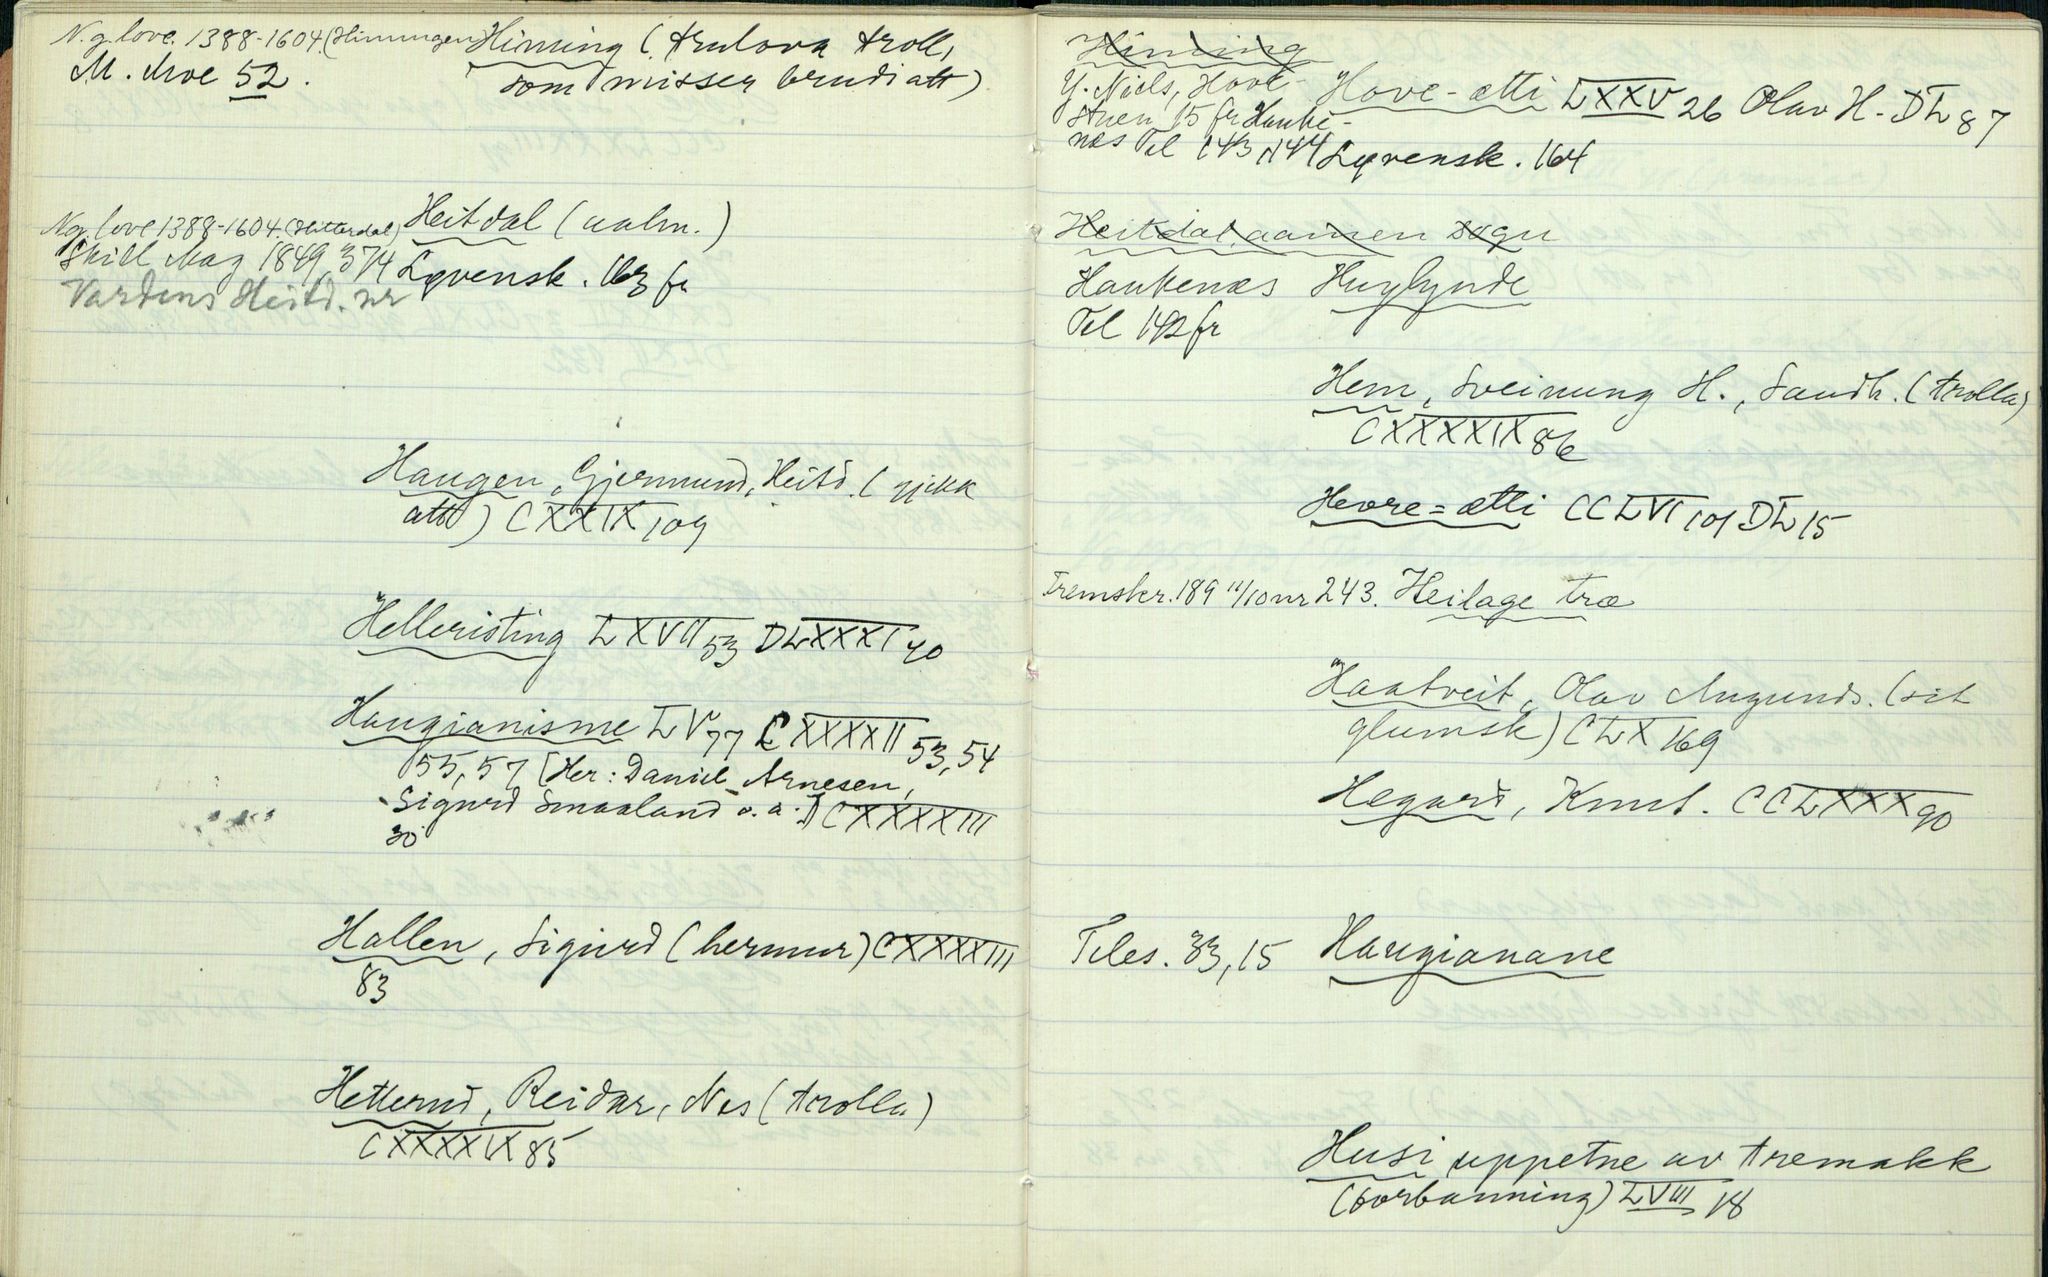 N.g. love. 1388-1604 (Himingen) Himing (trulova troll,
M. Moe 52. som misser brudi att)
N.g. love 1388-1604. (Hitterdal) Heitdal (aalm.)
Skill Mag 1849, 374 Løvensk. 163 fr
Vardens Heitd. nr
Haugen, Gjermund, Heitd. (gjekk
att) CXXIX 109
Helleristing LXVII 53 DLXXXI 40
Haugianisme LV 77 CXXXXII 53, 54
55, 57 [Her: Daniel Arnesen,
Sigurd Smaaland o. a.] CXXXXIII
30
Hallen, Sigurd (hermur) CXXXXIII
83
Hetterud, Reidar, Nes (trolla)
CXXXXIX 85
Himing
Y. Niels, Hove- Hove-ætti LXXV 26 Olav H. DL 87
stuen 15 fr Hauke-
næs Tel 143, 144 Løvensk. 164
Heitdal aamen sogn
Haukenæs Huglynde
Tel 142 fr
Hem, Sveinung H., Sandh. (trolla)
CXXXXIX 86
Hevre=ætti CCLVI 101 DL 15
Fremskr. 189 11/10 nr 243. Heilage træ
Haatveit, Olav Augunds. (sit
glumsk) CLX 169
Hegard, Knut. CCLXXX 90
Teles. 33, 15 Haugianane
Husi uppetne av tremakk
(forbanning) LVIII 18